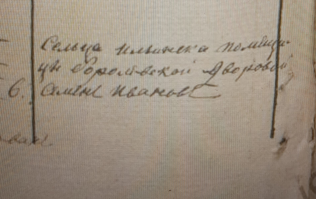 Сельца Ильинска помѣщи-
цы Боровской Дворовой
6. Семенъ Ивановъ